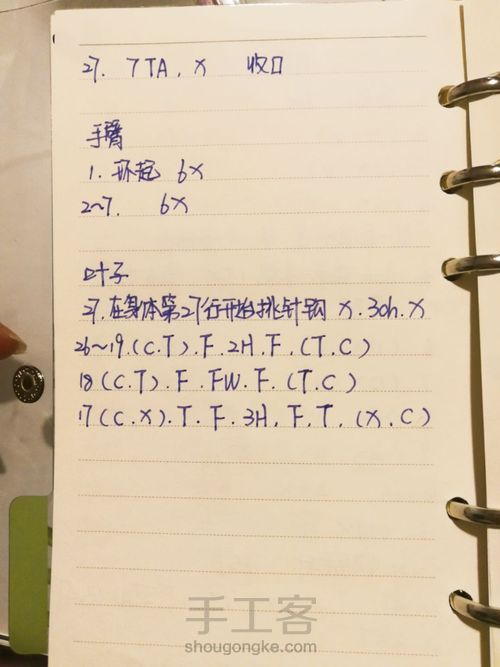 27. 7TA, X 收口
手臂
1. 环起 6X
2~7. 6X
叶子
27.在身体第27行开始挑针钩 X.30h.X
26~19.(C.T).F.2H.F.(T.C)
18(C.T).F.FW.F.(T.C)
17(C.X).T.F.3H.F.T.(X.C)
手工客
shougongke.com